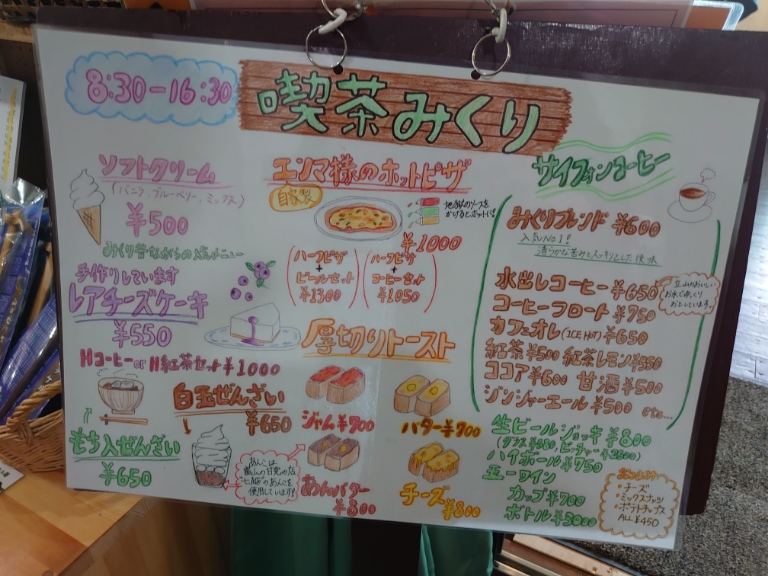 8:30-16:30
喫茶みくり
ソフトクリーム
(バニラ、ブルーベリー、ミックス)
¥500
みくり昔ながらの
手作りしています
レアチーズケーキ
¥550
Hコーヒー or H紅茶セット¥1000
白玉ぜんざい
¥650
もち入ぜんざい
¥650
あんこは
使用しています
エンマ様のホットピザ
自家製
¥1000
ハーフピザ
+
ビールセット
¥1300
ハーフピザ
+
コーヒーセット
¥1050
厚切りトースト
ジャム¥700
バター¥700
あんバター
¥800
チーズ¥800
サイフォンコーヒー
みくりブレンド ¥600
人気NO1!
水出しコーヒー¥650
コーヒーフロート ¥750
カフェオレ(ICE, HOT) ¥650
紅茶¥500 紅茶レモン¥550
ココア¥600 甘酒¥500
ジンジャーエール ¥500 etc...
立山のおいしい
生ビール ジョッキ ¥800
ハイボール¥750
カップ¥700
ボトル¥3000
・チーズ
・ミックスナッツ
・ポテトチップス
ALL ¥450